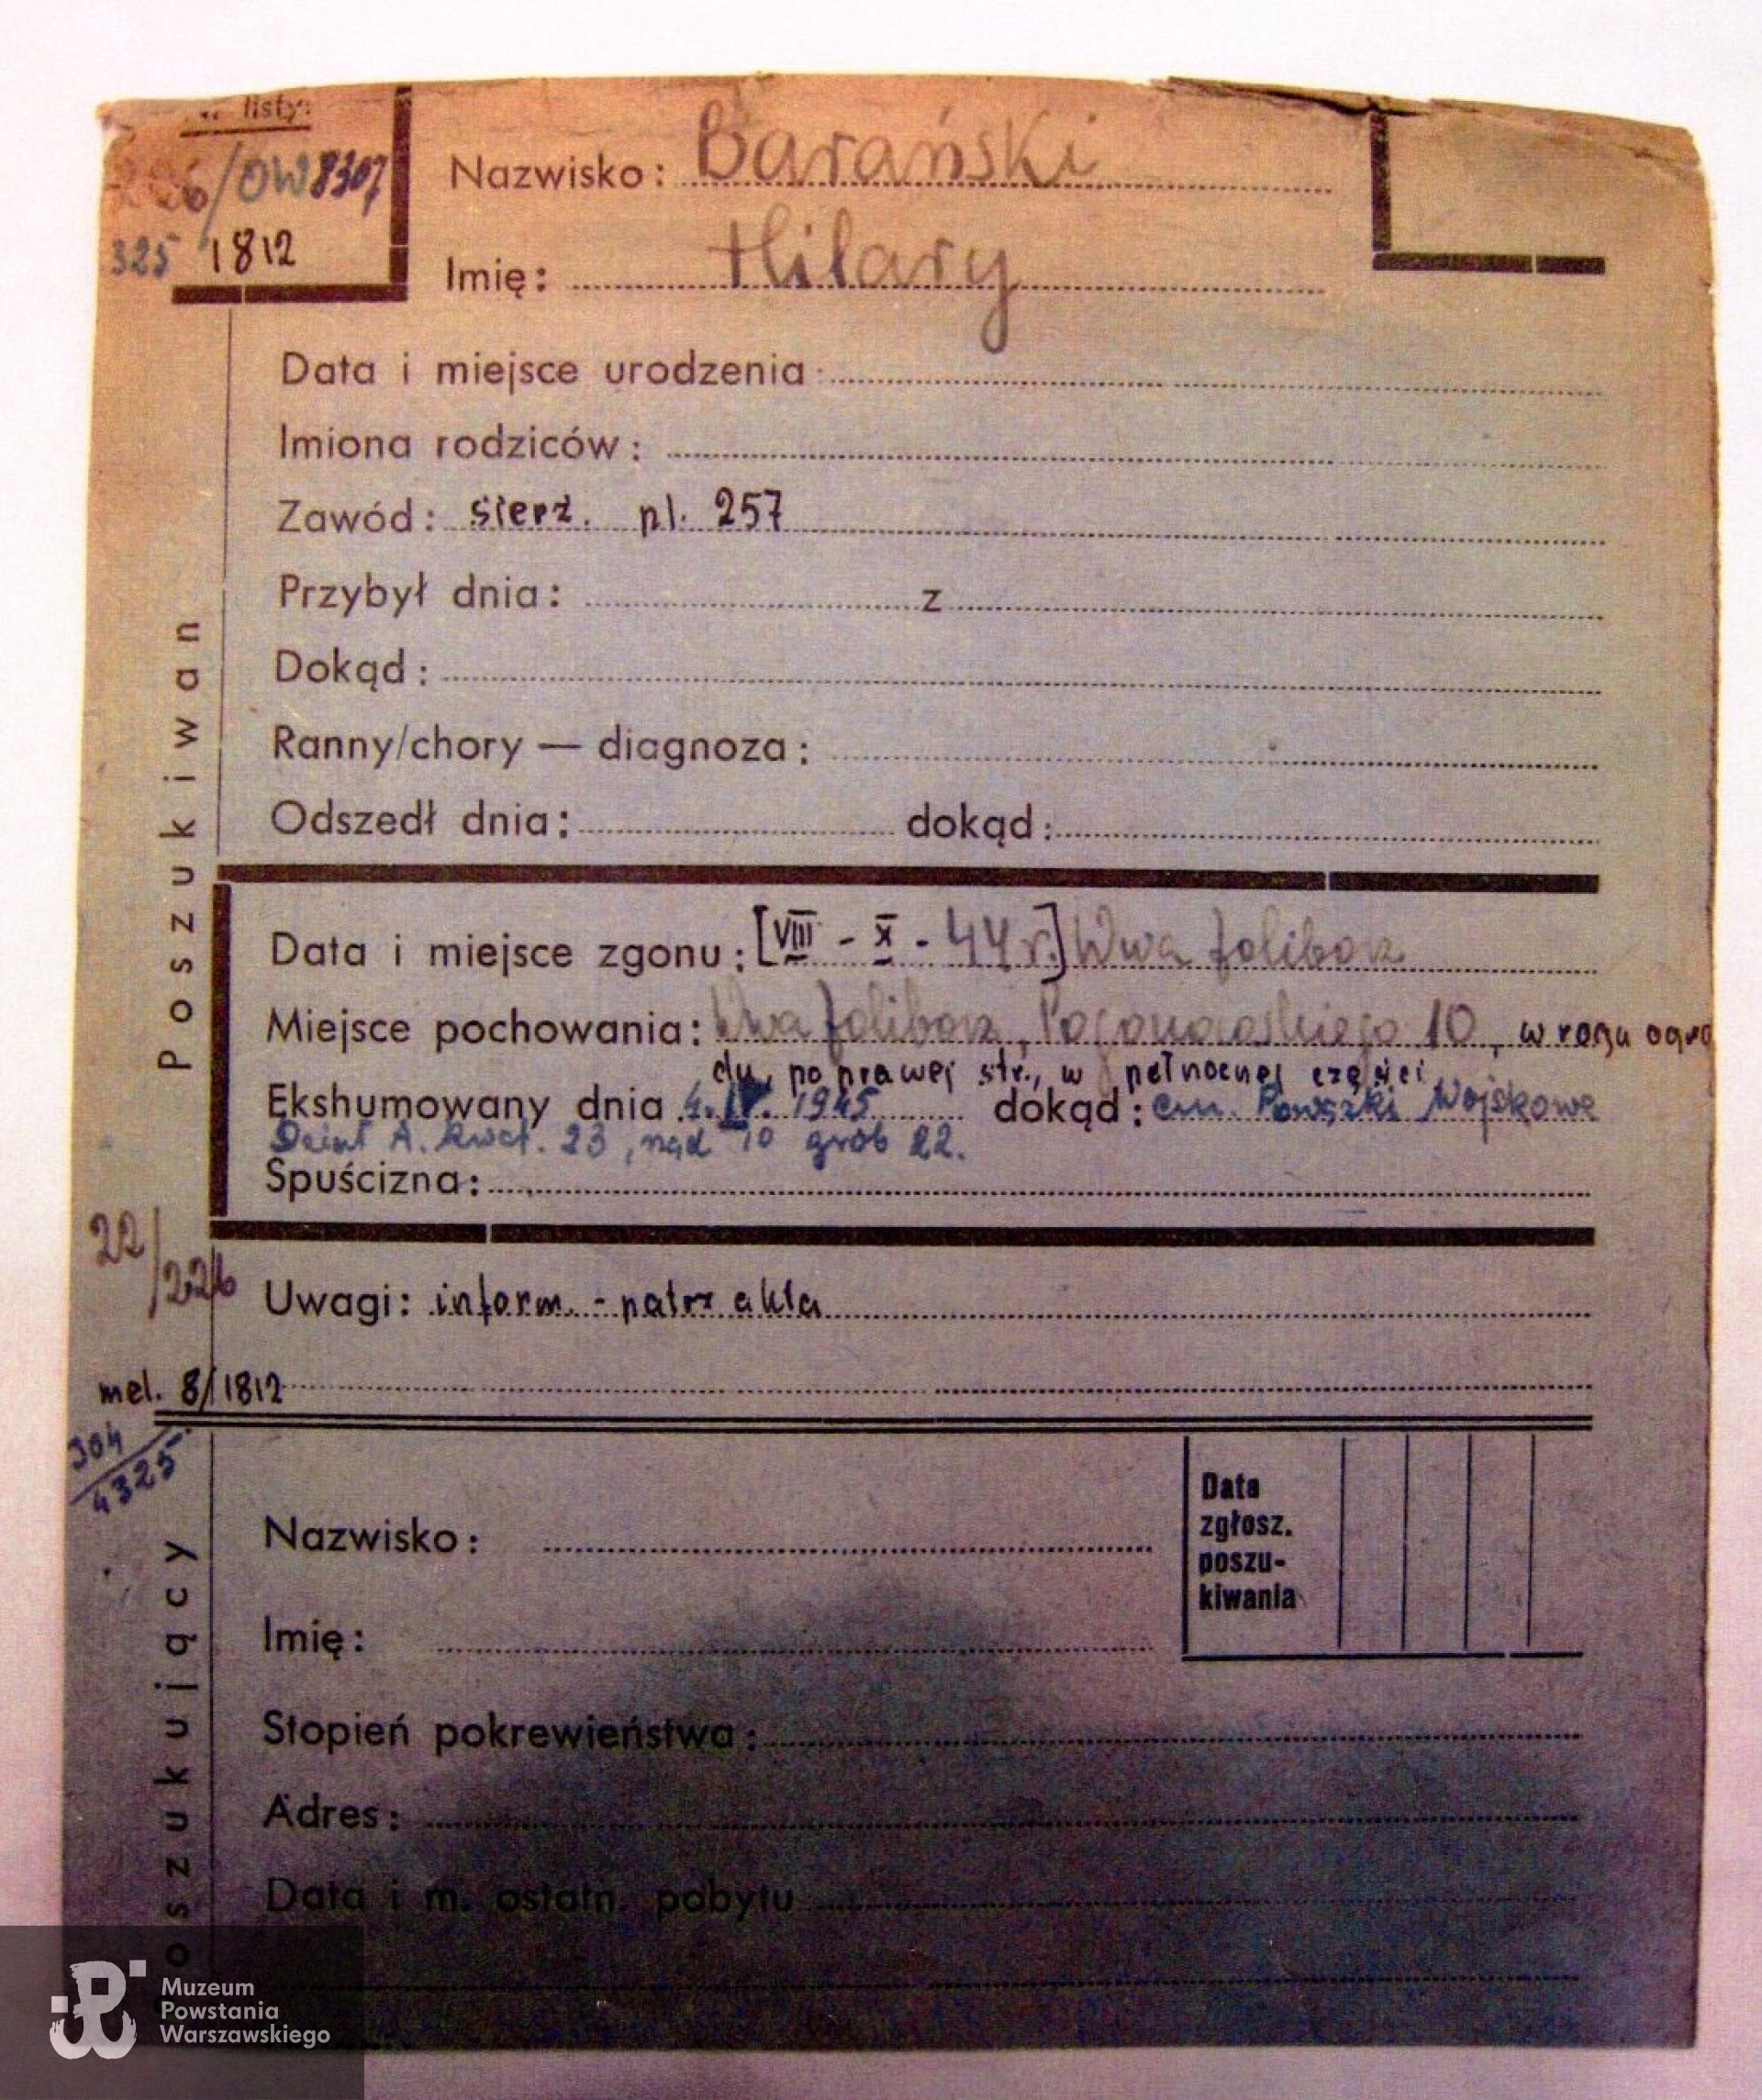 listy:
/OW8307
325 1812
Nazwisko: Barański
Imię: Hilary
Data i miejsce urodzenia
Imiona rodziców:
Zawód: sierż. pl. 257
Przybył dnia: z
Dokąd:
Ranny/chory — diagnoza:
Odszedł dnia: dokąd:
Poszukiwan
Data i miejsce zgonu: [VIII - X - 44 r.] Wwa Żoliborz
Miejsce pochowania: Wwa Żoliborz, 10, w rogu ogro
du, po prawej str., w północnej części
Ekshumowany dnia 4.IV.1945 dokąd: cm. Powązki Wojskowe
A. kwat. 23, rząd 10 grób 22.
Spuścizna:
22/226
Uwagi: inform. - patrz akta
mel. 8/1812
304
4325
Nazwisko:
Imię:
Data
zgłosz.
poszu-
kiwania
Stopień pokrewieństwa:
Adres:
Data i m. ostatn. pobytu
oszukujący
Muzeum
Powstania
Warszawskiego